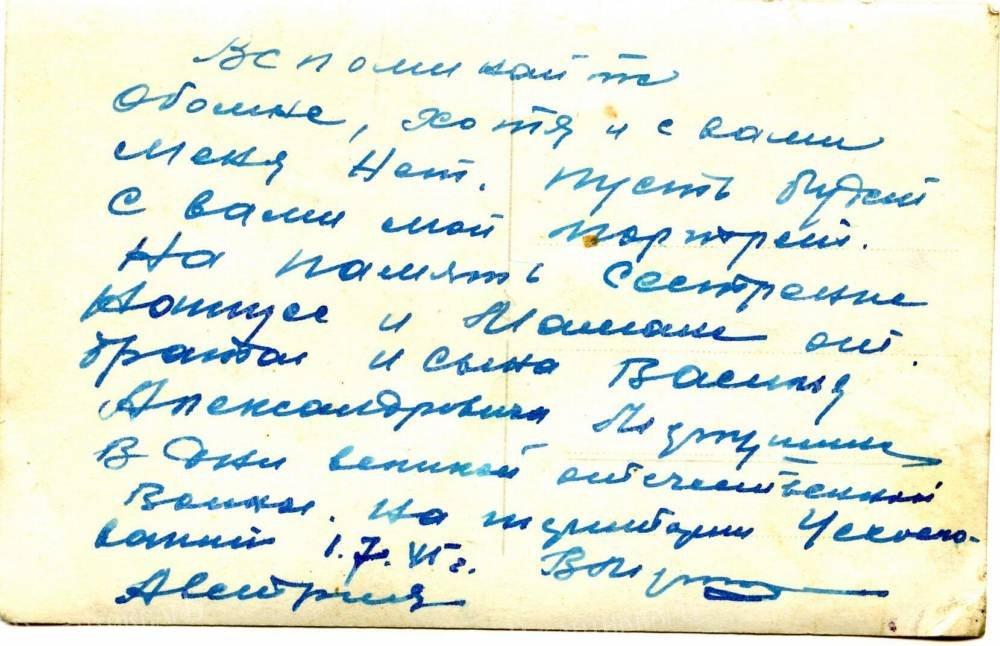 Вспоминайте
Обомне, хотя и с вами
меня Нет. пусть будет
с вами мой портрет.
На память сестренке
и Мамаше от
братa и сына Василия
Александровича
В дни великой отечественной
Войны. На территории Чехосло-
вакии 1.7. г.
Австрия